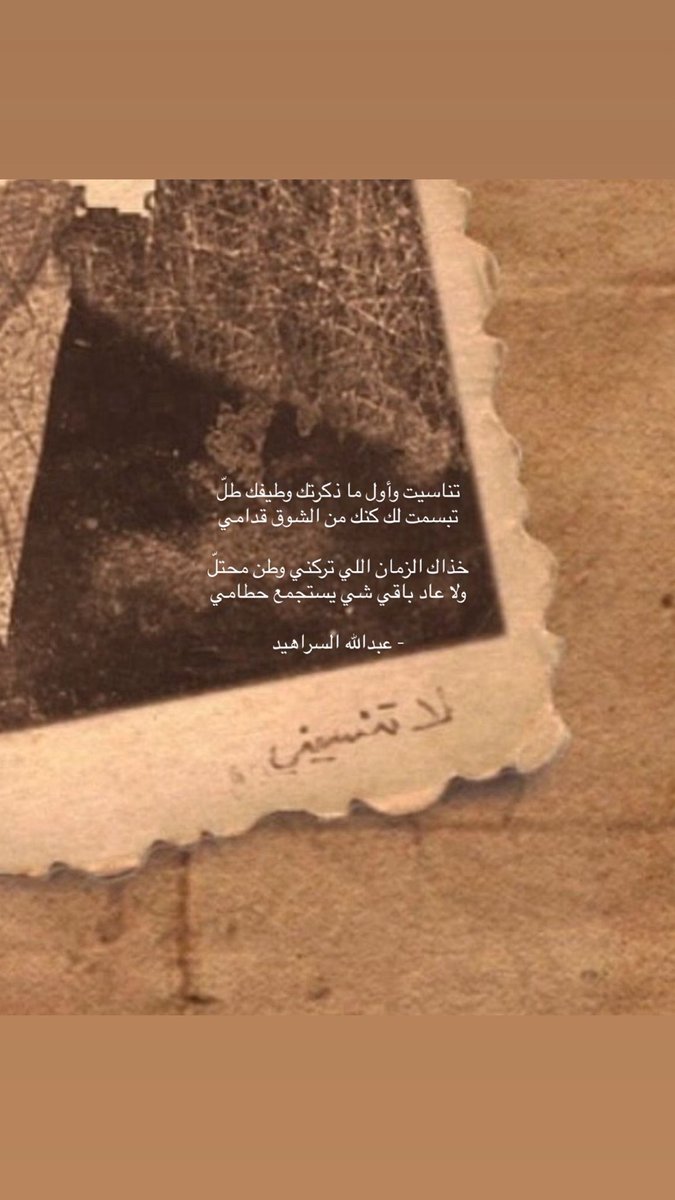 تناسيت وأول ما ذكرتك وطيفك طلّ
تبسمت لك كنك من الشوق قدامي
خذاك الزمان اللي تركني وطن محتلّ
ولا عاد باقي شي يستجمع حطامي
- عبدالله السراهيد
لا تنسيني